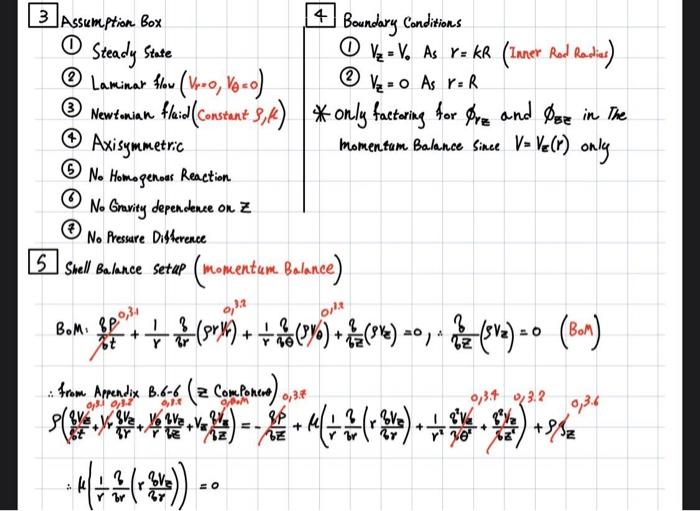 3 Assumption Box
① Steady State
② Laminar flow (Vr=0, Vθ=0)
③ Newtonian fluid (Constant ρ, μ)
④ Axisymmetric
⑤ No Homogenous Reaction
⑥ No Gravity dependence on Z
⑦ No Pressure Difference
4 Boundary Conditions
① Vz = V₀ As r = kR (Inner Rod Radius)
② Vz = 0 As r = R
* only factoring for ϕrz and ϕzz in The
Momentum Balance Since V = Vz(r) only
5 Shell Balance Setup (momentum Balance)
0,3.1 0,3.2 0,3.2
BoM: ∂ρ/∂t + 1/r ∂/∂r (ρrVr) + 1/r ∂/∂θ (ρVθ) + ∂/∂z (ρVz) = 0, ∴ ∂/∂z (ρVz) = 0 (BoM)
∴ from Appendix B.6-6 (z Component) 0,3.7
0,3.1 0,3.2 0,3.2 0,BoM 0,3.4 0,3.2 0,3.6
ρ(∂Vz/∂t + Vr ∂Vz/∂r + Vθ/r ∂Vz/∂θ + Vz ∂Vz/∂z) = - ∂P/∂z + μ(1/r ∂/∂r (r ∂Vz/∂r) + 1/r² ∂²Vz/∂θ² + ∂²Vz/∂z²) + ρgz
∴ μ(1/r ∂/∂r (r ∂Vz/∂r)) = 0